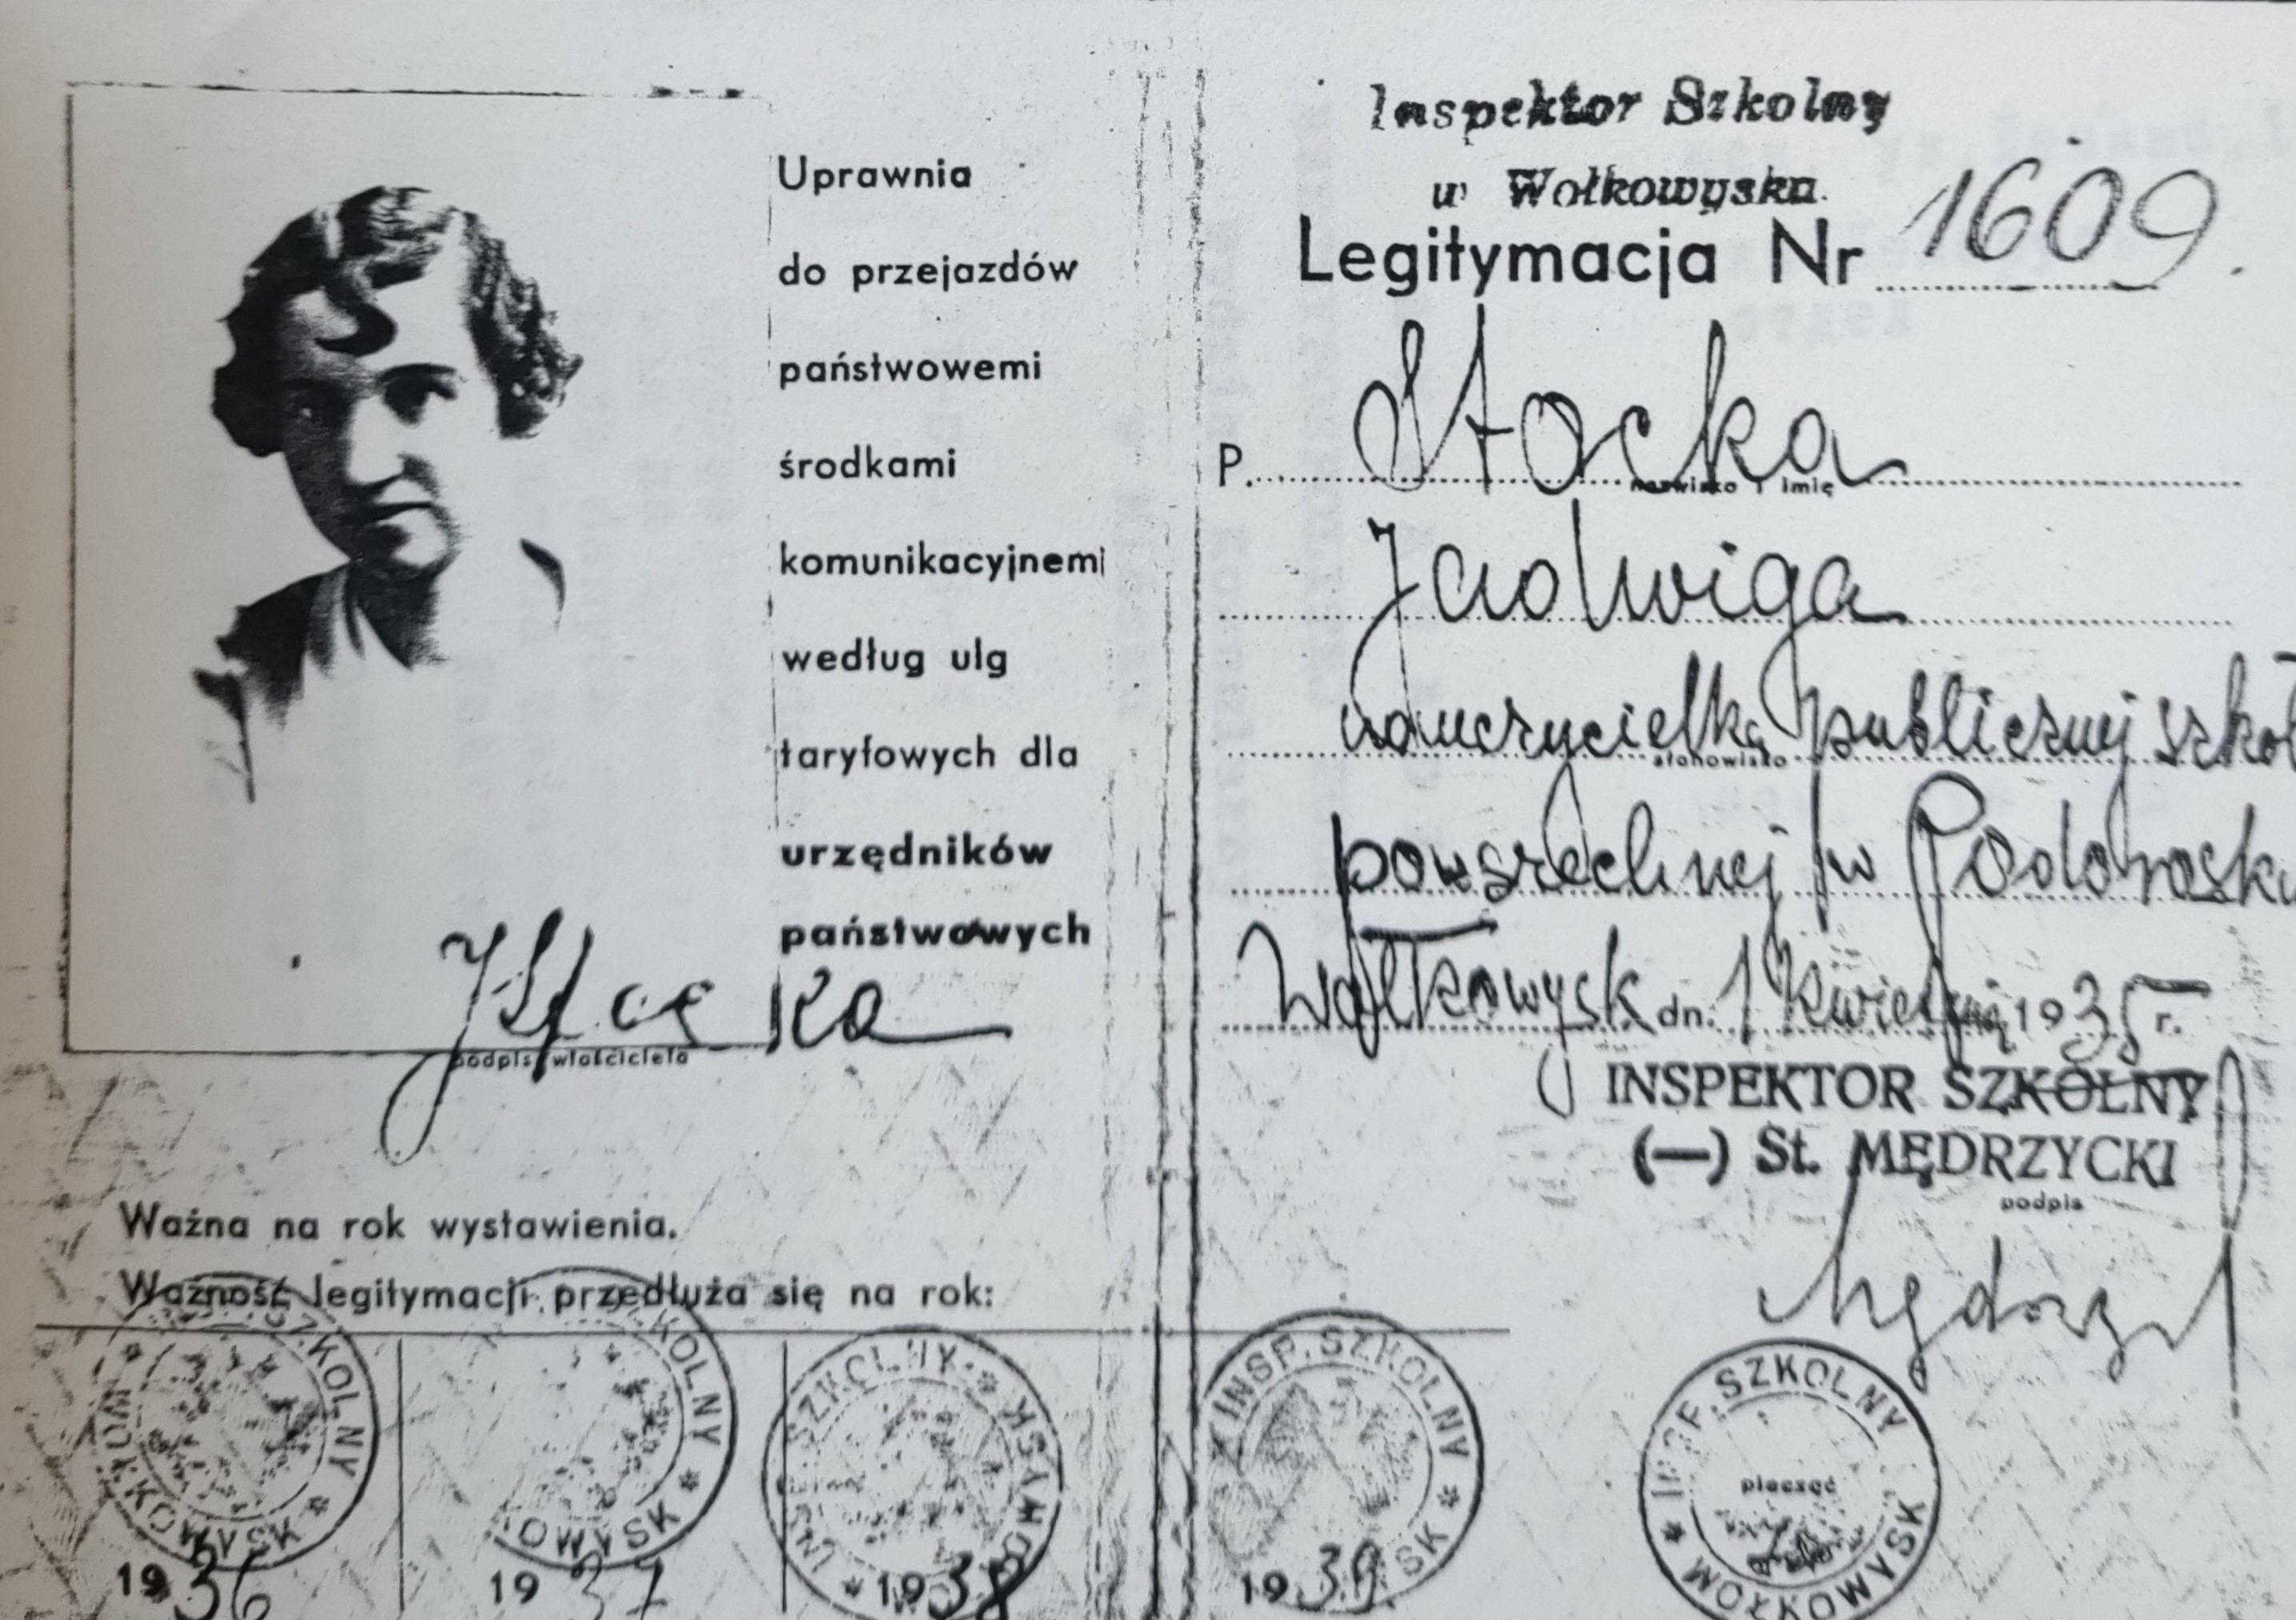 Uprawnia
do przejazdów
państwowemi
środkami
komunikacyjnemi
według ulg
taryfowych dla
urzędników
państwowych
JStocka
podpis właściciela
Ważna na rok wystawienia.
Ważność legitymacji przedłuża się na rok:
SZKOLNY * WOŁKOWYSK *
1936
KOLNY * OWYSK
1937
INSP. SZKOLNY * WOŁKOWYSK *
1938
Inspektor Szkolny
w Wołkowysku.
Legitymacja Nr 1609.
P. Stocka
nazwisko i imię
Jadwiga
nauczycielka publicznej szkoł
stanowisko
powszechnej w Podorosku
Wołkowysk dn. 1 kwietnia 1935 r.
INSPEKTOR SZKOLNY
(—) St. MĘDRZYCKI
podpis
INSP. SZKOLNY * SK
1939
SZKOLNY * WOŁKOWYSK *
pieczęć